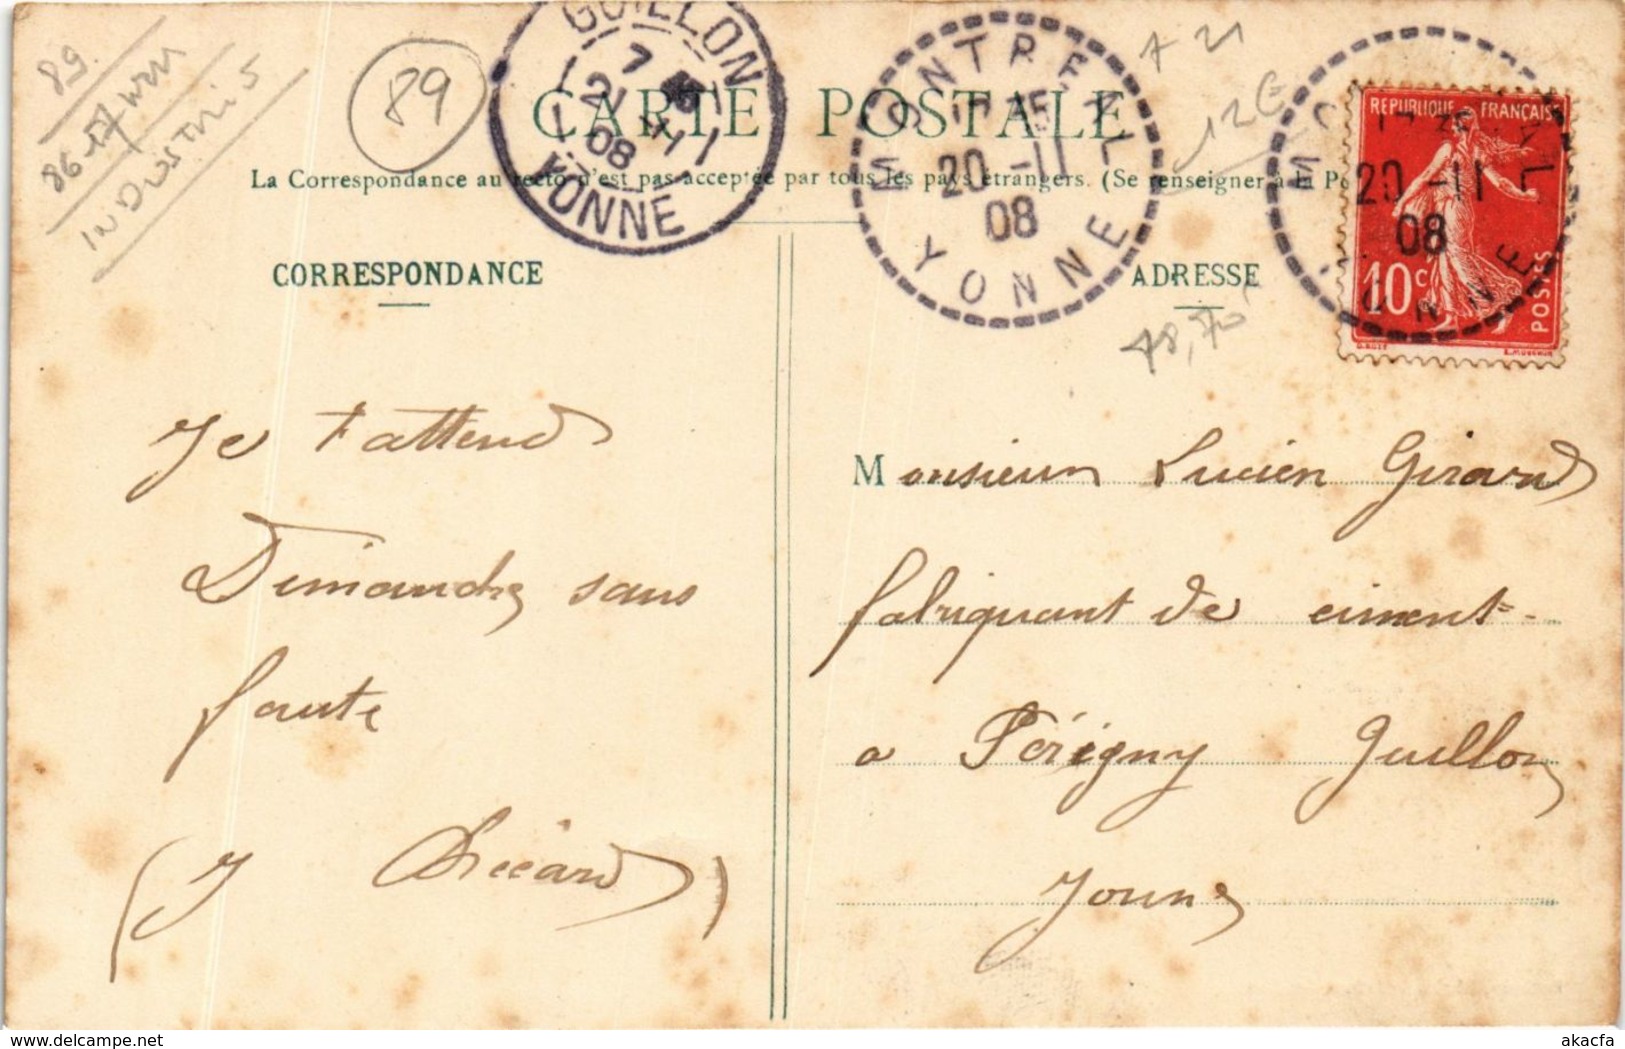 89
86-17
INDUSTRIS
89
GUILLON
7
21
11
08
YONNE
MONTREAL
20 -11
08
YONNE
A 21
12€
CARTE POSTALE
La Correspondance au recto n'est pas acceptée par tous les pays étrangers. (Se renseigner à la Po
REPUBLIQUE FRANÇAISE
20 -11
08
10c
POSTES
CORRESPONDANCE
ADRESSE
48,70
Je t'attend
Dimanche sans
faute
Monsieur Lucien Girard
fabriquant de ciment
a Périgny Guillon
Yonne
akacfa